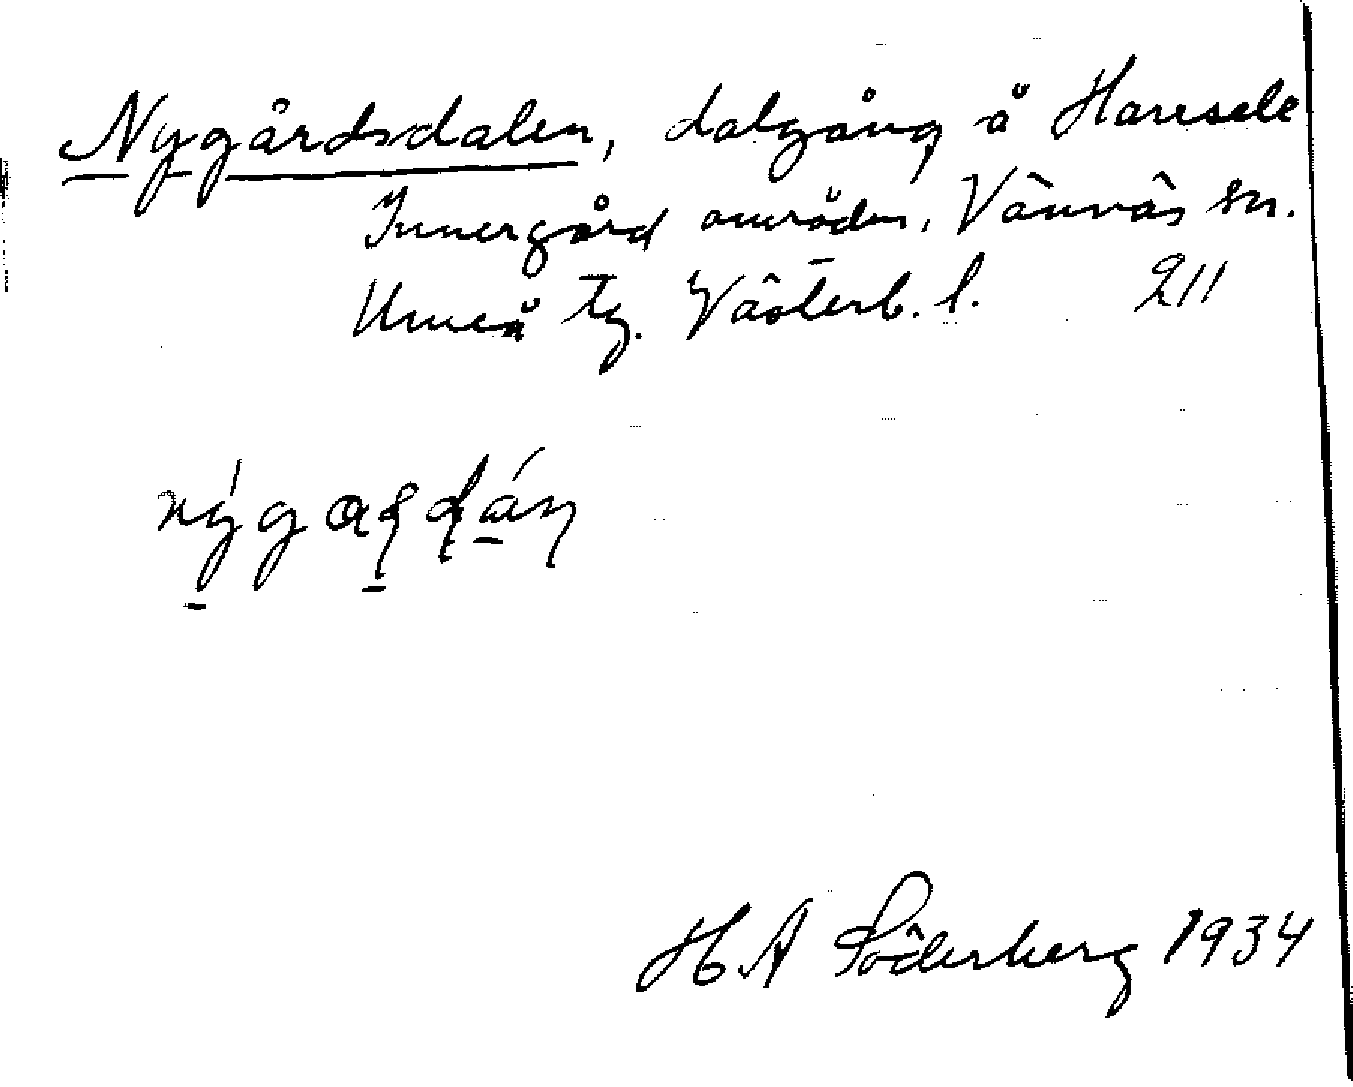 Nygårdsdalen, dalgång å Harrsele
Innergård område, Vännäs sn.
Umeå tg. Västerb. l. 211
H A Söderberg 1934